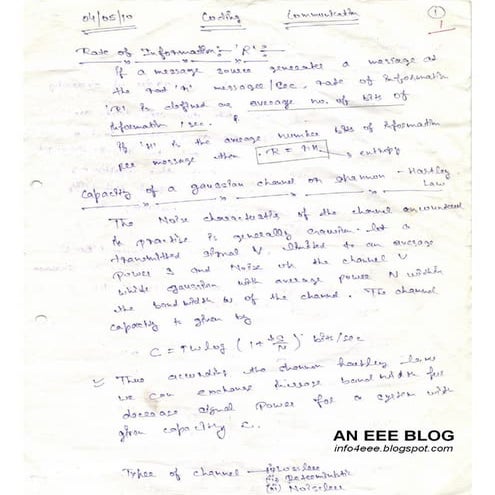 04/05/10 Coding Communication 1
1
Rate of Information :- 'R' :-
If a message source generates a message at
the rate 'r' messages/sec. rate of information
'R' is defined as average no. of bits of
information / sec.
If 'H' is the average number bits of information
per message then R = rH → entropy
Capacity of a gaussian channel or Shannon - Hartley
Law
The Noise characteristic of the channel encountered
in practise is generally Gaussian. let a
transmitted signal limited to an average
Power S and Noise the channel
white gaussian with average power N within
the bandwidth w of the channel. The channel
capacity is given by
C = W log (1 + S/N) bits/sec
Thus according the shannon hartley law
we can exchange message bandwidth for
decrease signal Power for a system with
given capacity C.
Types of channel (i) Lossless
(ii) Deterministic
(iii) Noiseless
AN EEE BLOG
info4eee.blogspot.com